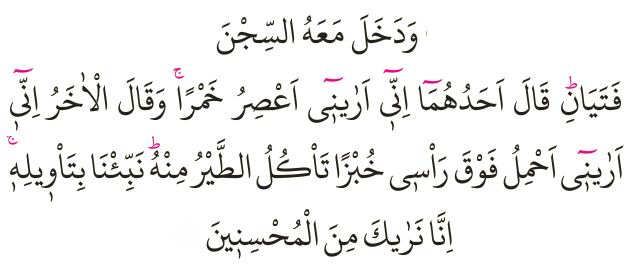 وَدَخَلَ مَعَهُ السِّجْنَ
فَتَيَانِۜ قَالَ اَحَدُهُمَٓا اِنّ۪ٓي اَرٰين۪ٓي اَعْصِرُ خَمْرًاۚ وَقَالَ الْاٰخَرُ اِنّ۪ٓي
اَرٰين۪ٓي اَحْمِلُ فَوْقَ رَأْس۪ي خُبْزًا تَأْكُلُ الطَّيْرُ مِنْهُۜ نَبِّئْنَا بِتَأْو۪يلِه۪ۚ
اِنَّا نَرٰيكَ مِنَ الْمُحْسِن۪ينَ